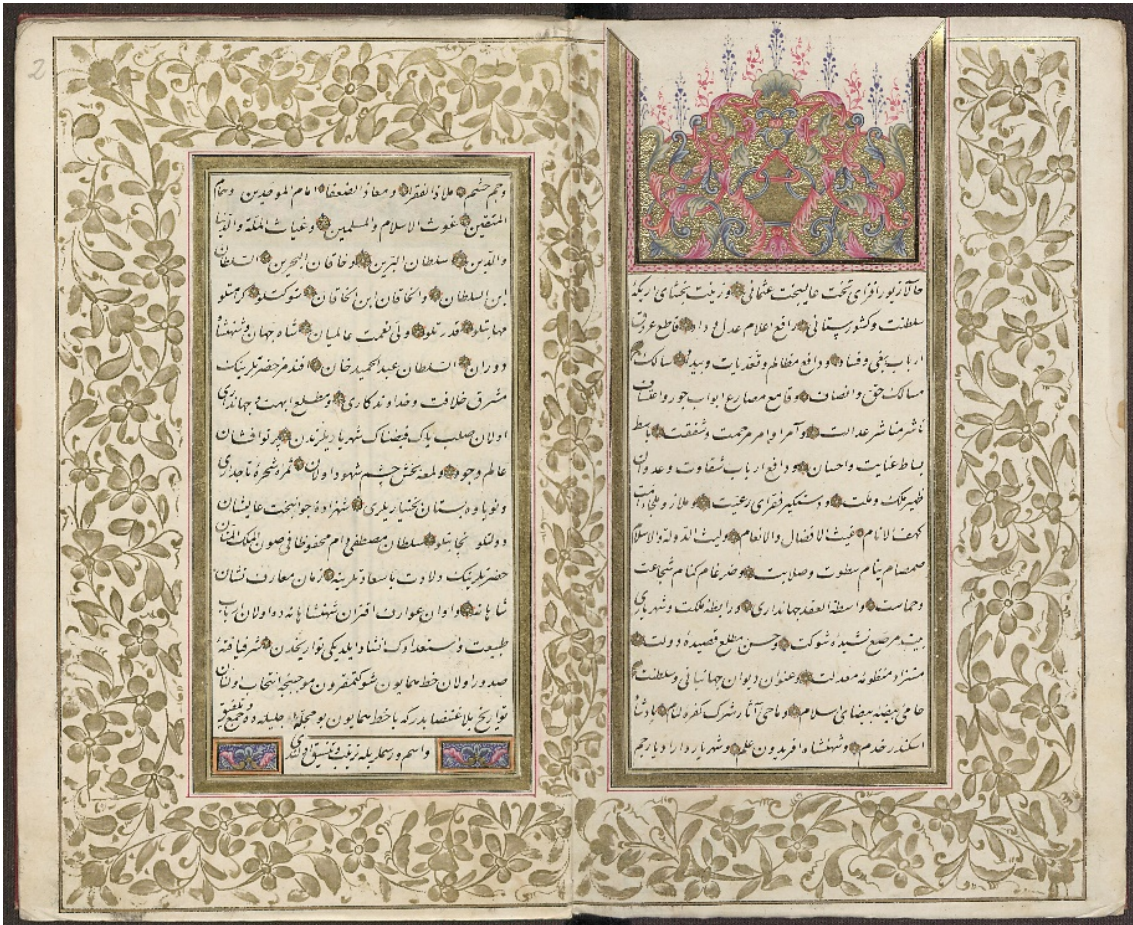 حالا زیور افزای تخت عالیبخت عثمانی وزینت بخشای اریکهٔ
سلطنت وکشورستانی رافع اعلام عدل وداد قاطع عروق
ارباب بغی وفساد ودافع مظالم وتعدیات وبیداد سالك
مسالك حق وانصاف وقامع مصارع ابواب جور واعتساف
ناشر مناشر عدالت وآمر اوامر مرحمت وشفقت باسط
بساط عنایت واحسان ودافع ارباب شقاوت وعدوان
ظهیر ملك وملت ودستكیر فقرای رعیت وملاذ وملجأ
كهف الانام غیث الافضال والانعام ولیث الدوله والاسلام
صمصام نیام سطوت وصلابت وضرغام كنام شجاعت
وحماست واسطة العقد جهانداری ورابطهٔ ملكت وشهریاری
بیت مرصع نشیدهٔ شوكت وحسن مطلع قصیدهٔ دولت
مستزاد منظومهٔ معدلت وعنوان دیوان جهانبانی وسلطنت
حامئ بیضهٔ بیضائ اسلام وماحئ آثار شرك كفره لئام پادشاه
اسكندر خدم وشهنشاه افریدون علم وشهریار دارا دیار جم
وجم حشم ملاذ الفقرا ومعاذ الضعفا امام الموحدین وهمام
المتقین غوث الاسلام والمسلمین وغیاث الملة والدنیا
والدین سلطان البرین وخاقان البحرین السلطان
ابن السلطان والخاقان ابن الخاقان شوكتلو كرامتلو
مهابتلو قدرتلو ولی نعمت عالمیان شاه جهان وشهنشاه
دوران السلطان عبد الحمید خان افندمز حضرتلرینك
مشرق خلافت وخداوندكاری ومطلع ابهت وجهانداری
اولان صلب پاك فیضناك شهریاریلرندن پرتو افشان
عالم وجود ولمعه بخش چشم شهود اولان ثمرهٔ شجرهٔ تاجداری
ونوباوهٔ بستان بختیاریلری شهزادهٔ جوانبخت عالیشان
دولتلو نجابتلو سلطان مصطفی دام محفوظا فی صون الملك المنان
حضرتلرینك ولادت باسعادتلرینه زمان معارف نشان
شاهانه واوان عوارف اقتران شهنشاهانه ده اولان ارباب
طبیعت ومستعدانك انشاد ایلدیكی تواریخدن شرفیافتهٔ
صدور اولان خط همایون شوكتمقرون موجبنجه انتخاب اولنان
تواریخ بلاغتصابدر كه باخط همایون بو مجلهٔ جلیله ده جمع وتلفیق
واسم ورسملریله تزیین وتنسیق اولندی
2